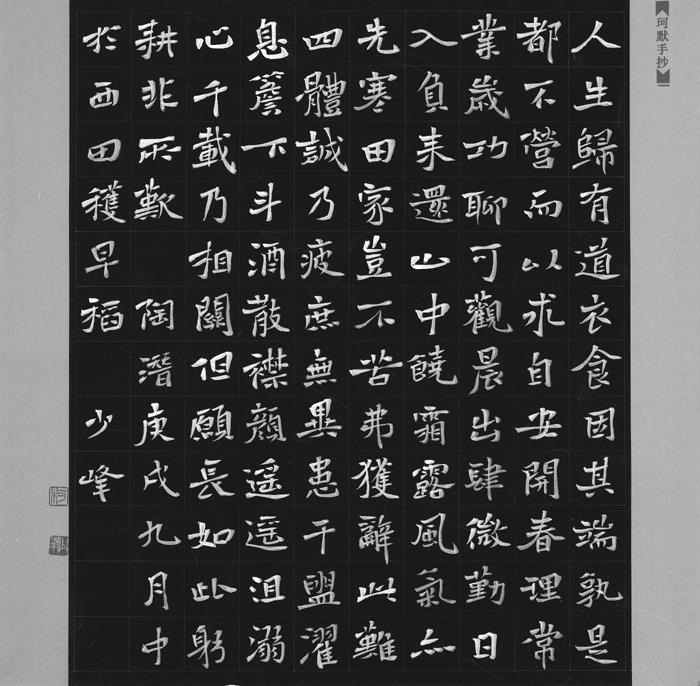 珂默手抄
人生歸有道衣食固其端孰是
都不營而以求自安開春理常
業歲功聊可觀晨出肆微勤日
入負耒還山中饒霜露風氣亦
先寒田家豈不苦弗獲辭此難
四體誠乃疲庶無異患干盥濯
息簷下斗酒散襟顏遥遥沮溺
心千載乃相關但願長如此躬
耕非所歎 陶潛庚戌九月中
於西田穫早稻 少峰